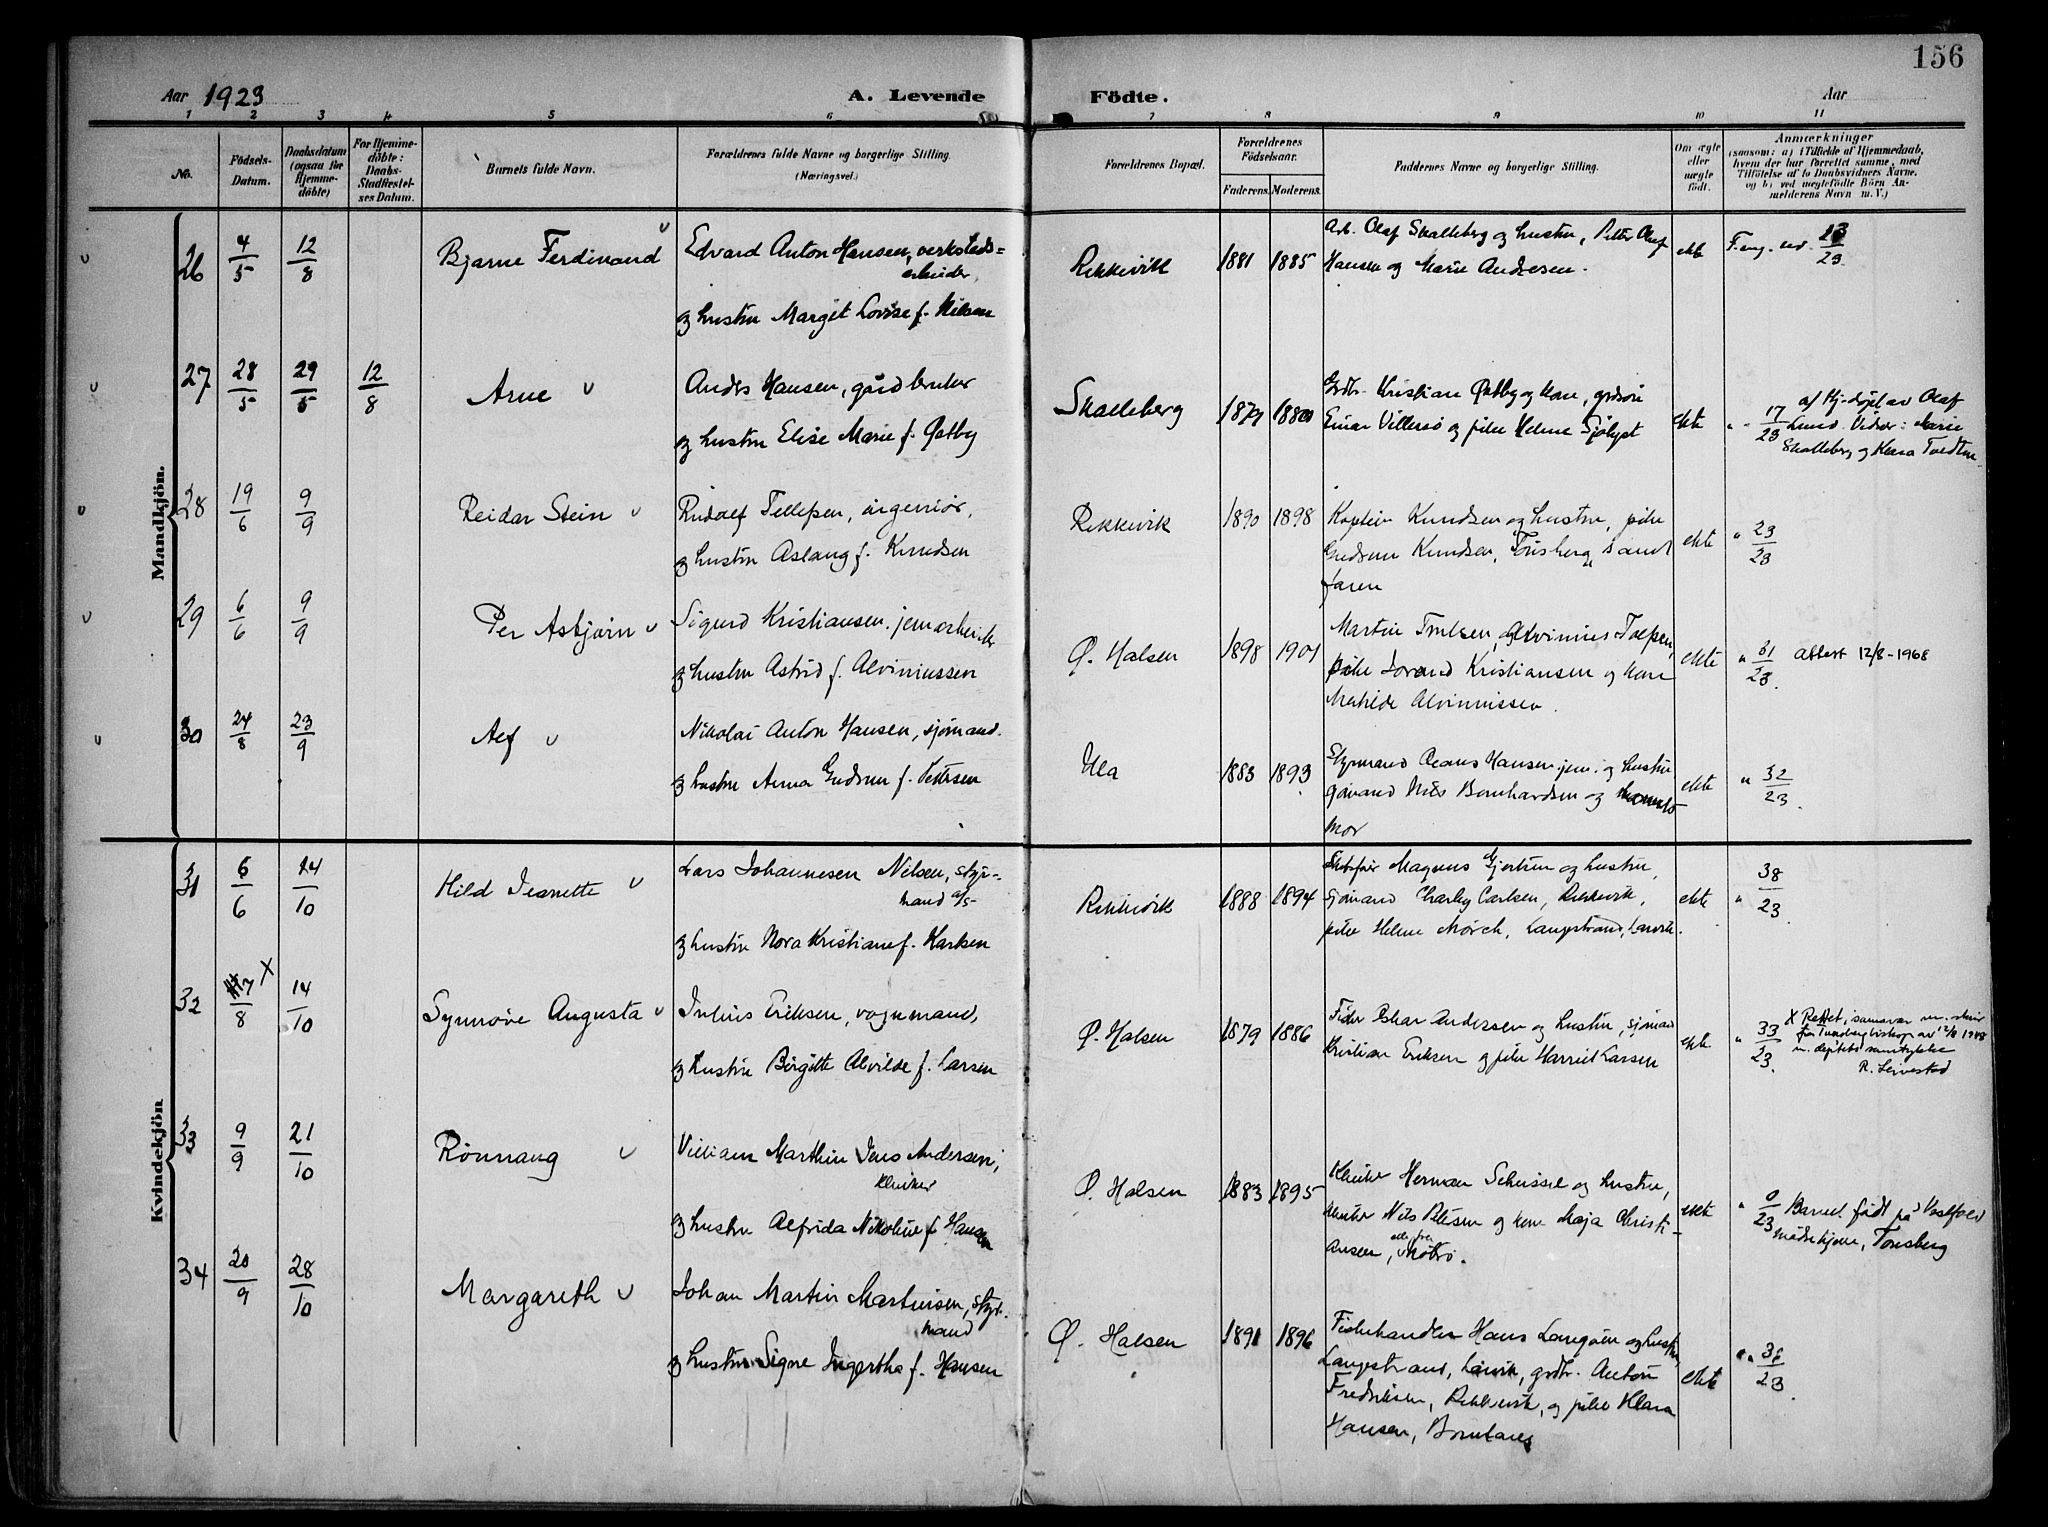 156
Aar 1923
A. Levende
Födte.
Aar
1 2 3 4 5 6 7 8 9 10 11
No.
Födsels-
Datum.
Daabsdatum
(ogsaa for
Hjemme-
döbte)
For Hjemme-
döbte:
Daabs-
Stadfæstel-
ses Datum.
Barnets fulde Navn.
Forældrenes fulde Navne og borgerlige Stilling.
(Næringsvei.)
Forældrenes Bopæl.
Forældrenes
Födselsaar.
Faderens. Moderens.
Faddernes Navne og borgerlige Stilling.
Om ægte
eller
uægte
födt.
Anmærkninger
(saasom: a) i Tilfælde af Hjemmedaab,
hvem der har forrettet samme, med
Tilföielse af to Daabsvidners Navne,
og b) ved uægtefödte Börn An-
mælderens Navn m. V.)
Mandkjön.
26 4/5 12/8 Bjarne Ferdinand
Edvard Anton Hansen, verksteds-
arbeider,
og hustru Margit Lovise f. Nilsen
Rekkevik 1881 1885
Arb. Olaf Skalleberg og hustru, Petter Olaf
Hansen og Marie Andresen.
ekte
23
27 28/5 29/5 12/8 Arne
Anders Hansen, gårdbruker
og hustru Elise Marie f. Østby
Skalleberg
Grdbr. Kristian Østby og kone,
Einar Villersø og pike Helene Sjølyst
ekte
17/23
Hj-døpt av Olaf
Lund. Vidner: Marie
Skalleberg og Klara Tvedten.
28 19/6 9/9 Reidar Stein
Rudolf Tellefsen, ingeniør,
og hustru Aslaug f. Knudsen
Rekkevik 1890 1898
Kaptein Knudsen og hustru, pike
Gudrun Knudsen, Tønsberg, samt
faren
ekte " 23/23
29 6/6 9/9 Per Asbjørn
Sigurd Kristiansen, jernarbeider
og hustru Astrid f. Alviniussen
Ø. Halsen 1898 1901
Martin Trulsen, Alvinius Tolfsen,
pike Jovand Kristiansen og kone
Mathilde Alviniussen.
ekte " 31/23. Attest 12/8-1968
30 24/8 23/9 Alf
Nikolai Anton Hansen, sjømand.
og hustru Anna Gudrun f. Pettersen
Ula 1883 1893
Styrmand Claus Hansen jun. og hustru
sjømand Nils Bernhardsen og
mor
ekte " 32/23.
Kvindekjön
31 6/6 14/10 Hild Jeanette
Lars Johannesen Nilsen, styr-
mand
og hustru Nora Kristiane f. Karlsen
Rekkevik 1888 1894
Skibsfør Magnus Gjertsen og hustru,
sjømand Charley Carlsen, Rekkevik,
pike Helene Mørch, Langestrand, Larvik.
ekte " 38/23
32 17/8 X 14/10 Synnøve Augusta
Julius Eriksen, vognmand,
og hustru Birgitte Alvilde f. Larsen
Ø. Halsen 1879 1886
Fisker Oskar Andersen og hustru, sjømand
Kristian Eriksen og pike Harriet Larsen
ekte " 33/23.
X Rettet, i samsvar m. skriv
fra Tunsberg biskop av 12/8 1948
m. dept.s samtykke
R. Leivestad
33 9/9 21/10 Rönnaug
Villiam Marthin Jens Andersen,
klinker
og hustru Alfrida Nikoline f. Hansen
Ø. Halsen 1883 1895
Klinker Herman Scheissel og hustru,
klinker Nils Pettersen og kone Maja Christi-
ansen, alle fra Nøtterø.
ekte " 0/23
Barnet født på Vestfold
mødrehjem, Tønsberg
34 20/9 28/10 Margareth
Johan Martin Martinsen, styr-
mand
og hustru Signe Ingertha f. Hansen
Ø. Halsen 1891 1896
Fiskehandler Hans Langøen og hustru,
Langestrand, Larvik, grdbr. Anton
Fredriksen, Rekkevik, og pike Klara
Hansen,
ekte " 36/23